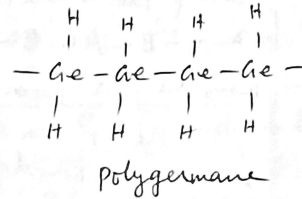 H H H H
— Ge — Ge — Ge — Ge —
H H H H
polygermane